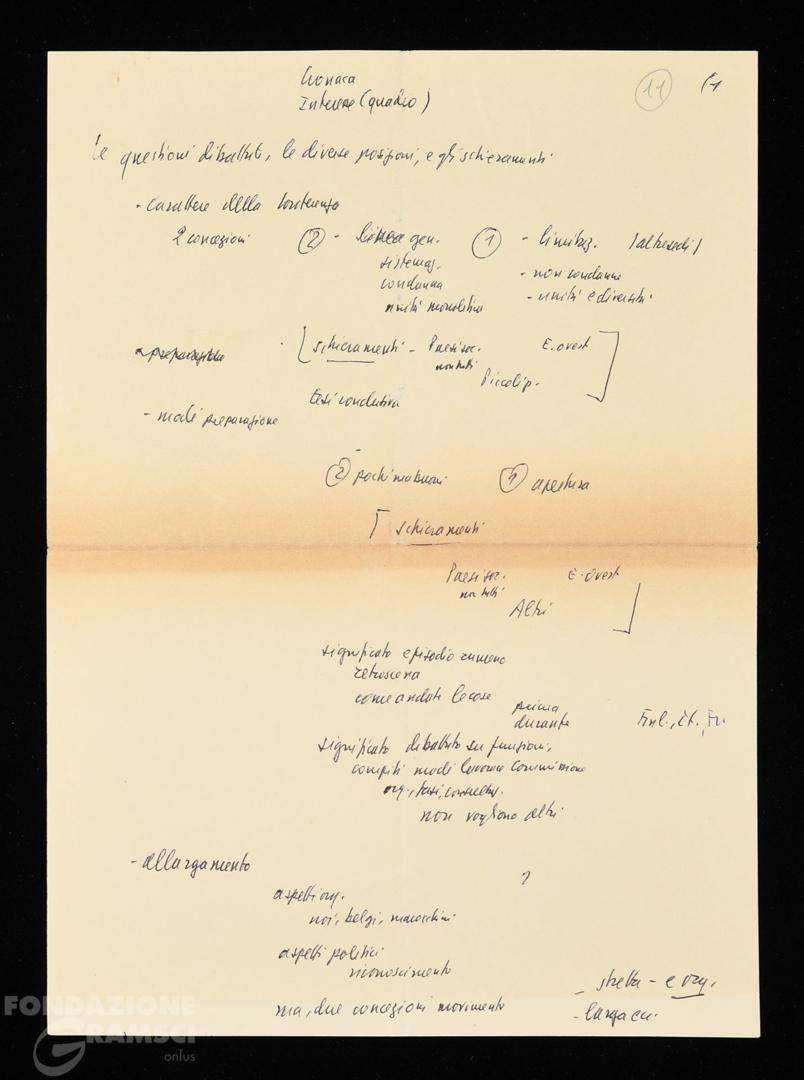 Cronaca
Interesse (quadro)
11
Le questioni dibattute, le diverse posizioni, e gli schieramenti
- carattere della conferenza
2 concezioni ② - linea gen. ① - limitaz. /altre sedi/
sistemaz. - non condanne
condanna - unità e diversità
unità monolitica
[ schieramenti - Paesi soc. E. ovest ]
non tutti Piccoli p.
tesi conclusiva
- modi preparazione
② pochi ma buoni ① apertura
[ schieramenti
Paesi soc. E. Ovest
non tutti
Altri ]
significato episodio rumeno
retroscena
come andate le cose
prima
durante Finl., It., Fr.
significato dibattito su funzioni,
compiti modi lavoro Commissione
non vogliono altri
- allargamento
?
aspetti org.
noi, belgi, marocchini
aspetti politici
riconoscimento
ma, due concezioni movimento
- stretta - e org.
- larga
FONDAZIONE
GRAMSCI
onlus